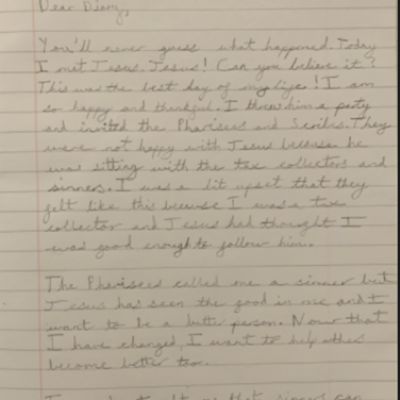 Dear Diary,
You'll never guess what happened. Today
I met Jesus. Jesus! Can you believe it?
This was the best day of my life! I am
so happy and thankful. I threw him a party
and invited the Pharisees and Scribes. They
were not happy with Jesus because he
was sitting with the tax collectors and
sinners. I was a bit upset that they
felt like this because I was a tax
collector and Jesus had thought I
was good enough to follow him.
The Pharisees called me a sinner but
Jesus has seen the good in me and I
want to be a better person. Now that
I have changed, I want to help others
become better too.
that sinners can